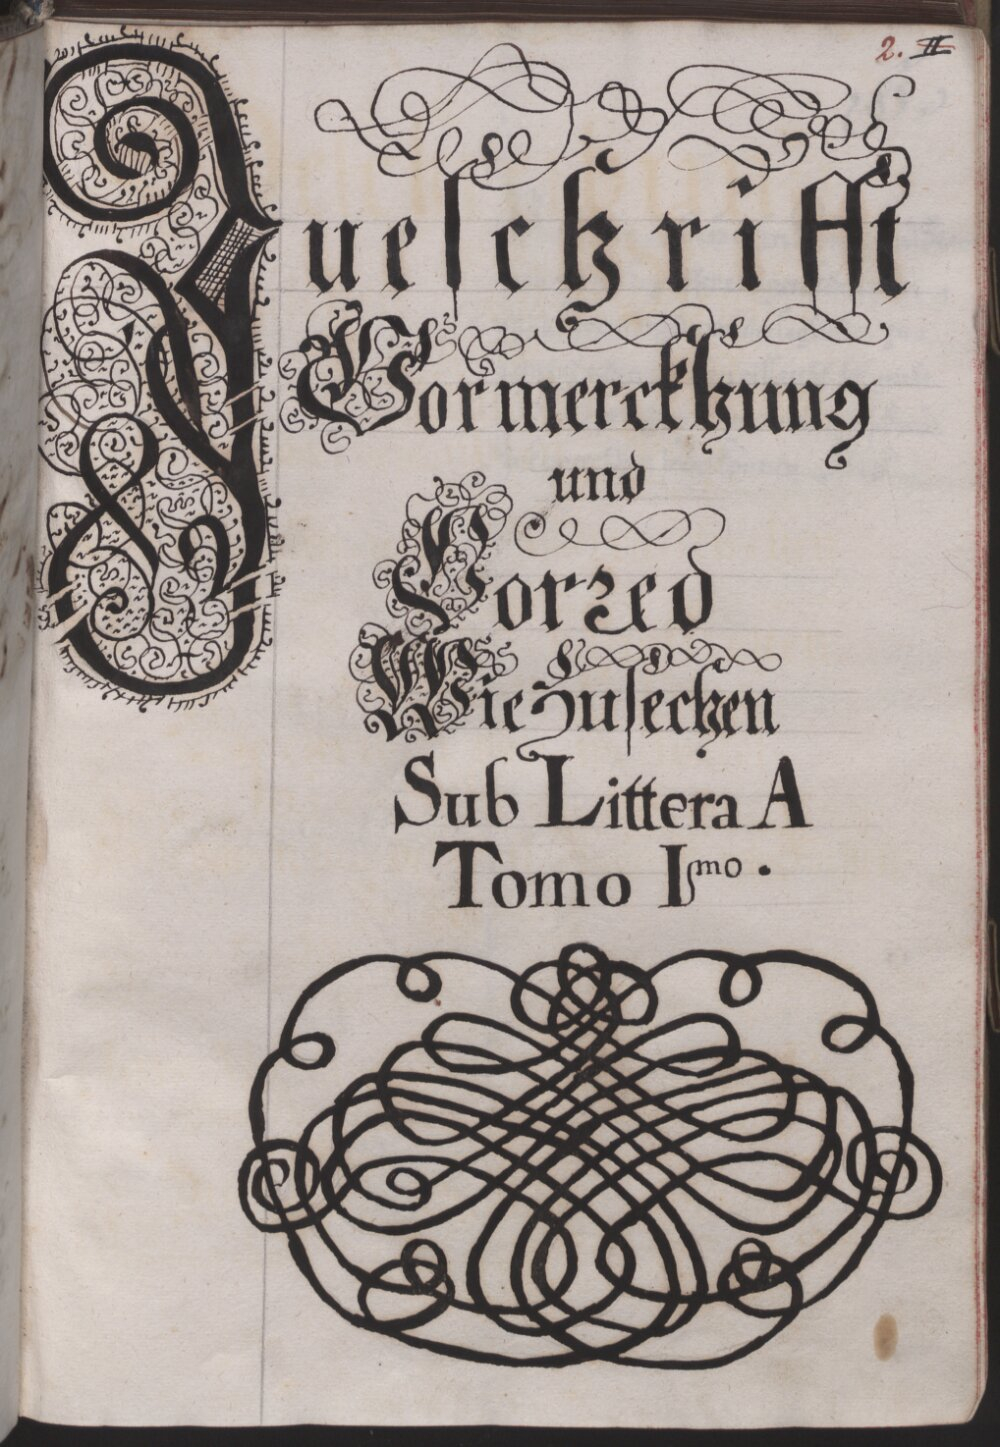 2. II
Zueschrifft
Vormerckhung
und
Vorred
Wie zu sechen
Sub Littera A
Tomo Imo.